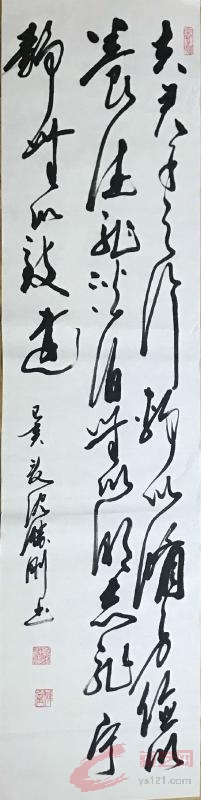 夫君子之行静以修身俭以
养德非淡泊无以明志非宁
静无以致远
己亥 沈胜刚书
ys121.com